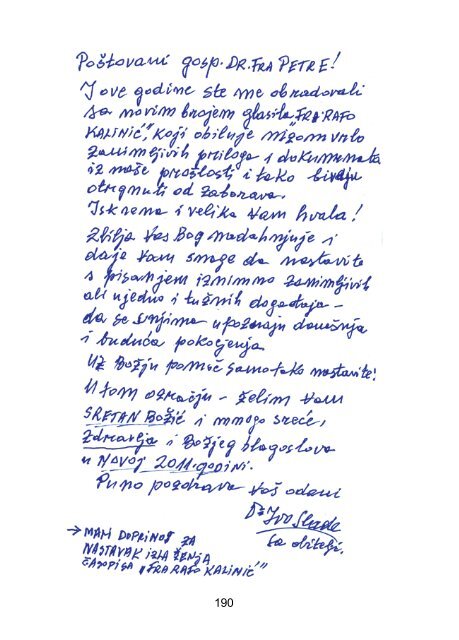 Poštovani gosp. DR. FRA PETRE!
I ove godine ste me obradovali
sa novim brojem glasila „FRA RAFO
KALINIĆ", koji obiluje nizom vrlo
zanimljivih priloga i dokumenata
iz naše prošlosti i tako bivaju
otrgnuti od zaborava.
Iskrena i velika Vam hvala!
Zbilja Vas Bog nadahnjuje i
daje Vam snage da nastavite
s pisanjem iznimno zanimljivih
ali ujedno i tužnih događaja –
da se s njima upoznaju današnja
i buduća pokoljenja.
Uz Božju pomoć samo tako nastavite!
U tom ozračju – želim Vam
SRETAN BOŽIĆ i mnogo sreće,
zdravlja i Božjeg blagoslova
u NOVOJ 2011. godini.
Puno pozdrava Vaš odani
Dr Ivo
sa obitelji.
→ MALI DOPRINOS ZA
NASTAVAK IZLAŽENJA
ČASOPISA „FRA RAFO KALINIĆ"
190